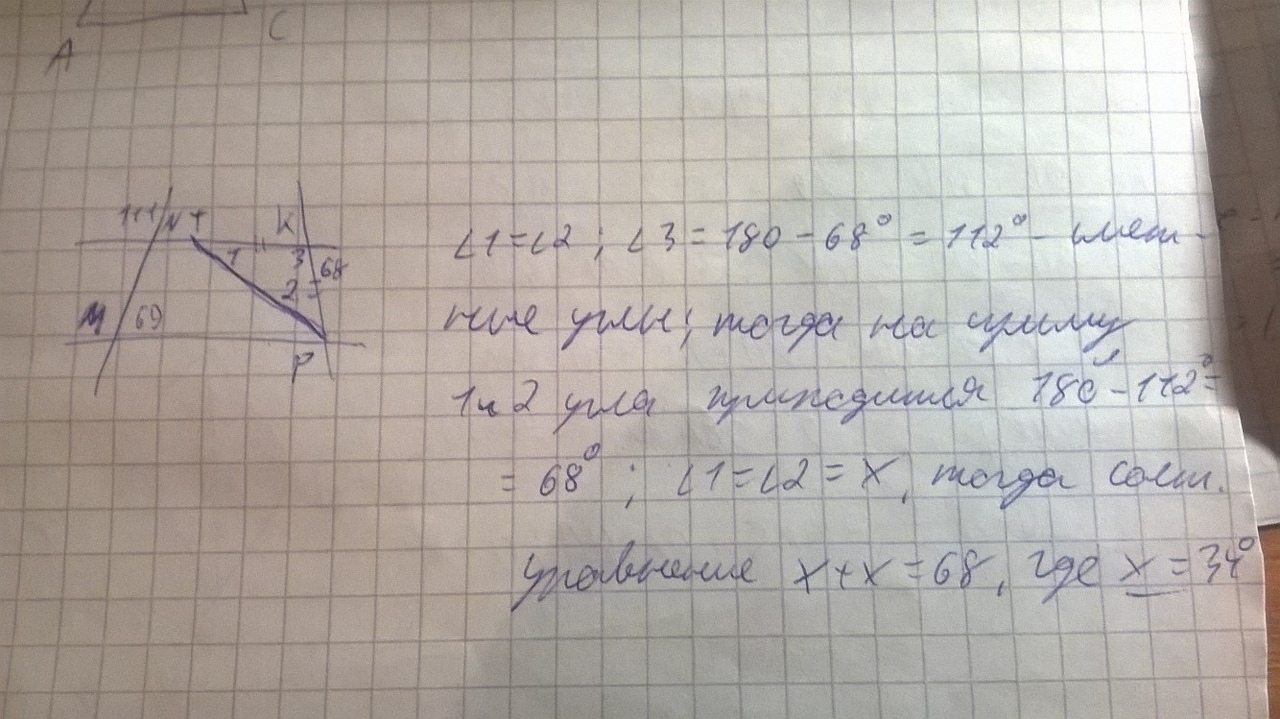 A
C
111
N
T
K
1
3
68
2
M
69
P
∠1=∠2 ; ∠3 = 180 - 68° = 112° - смеж-
ные углы; тогда на сумму
1 и 2 угла приходится 180° - 112° =
= 68° ; ∠1=∠2 = x, тогда сост.
уравнение x+x = 68, где x = 34°